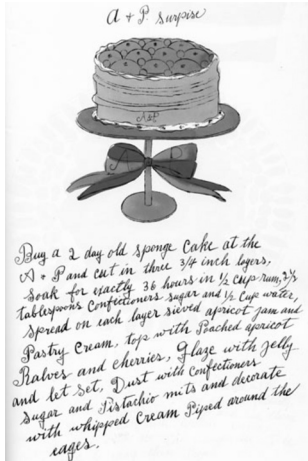 A + P. Surpise
A&P
A P
Buy a 2 day old sponge cake at the
A + P and cut in three 3/4 inch layers,
Soak for exactly 36 hours in 1/2 cup rum, 2 1/2
tablespoons Confectioners sugar and 1/2 cup water,
spread on each layer sieved apricot jam and
Pastry Cream, top with Poached apricot
Halves and cherries, Glaze with jelly
and let set, Dust with Confectioners
sugar and Pistachio nuts and decorate
with whipped Cream Piped around the
eages.